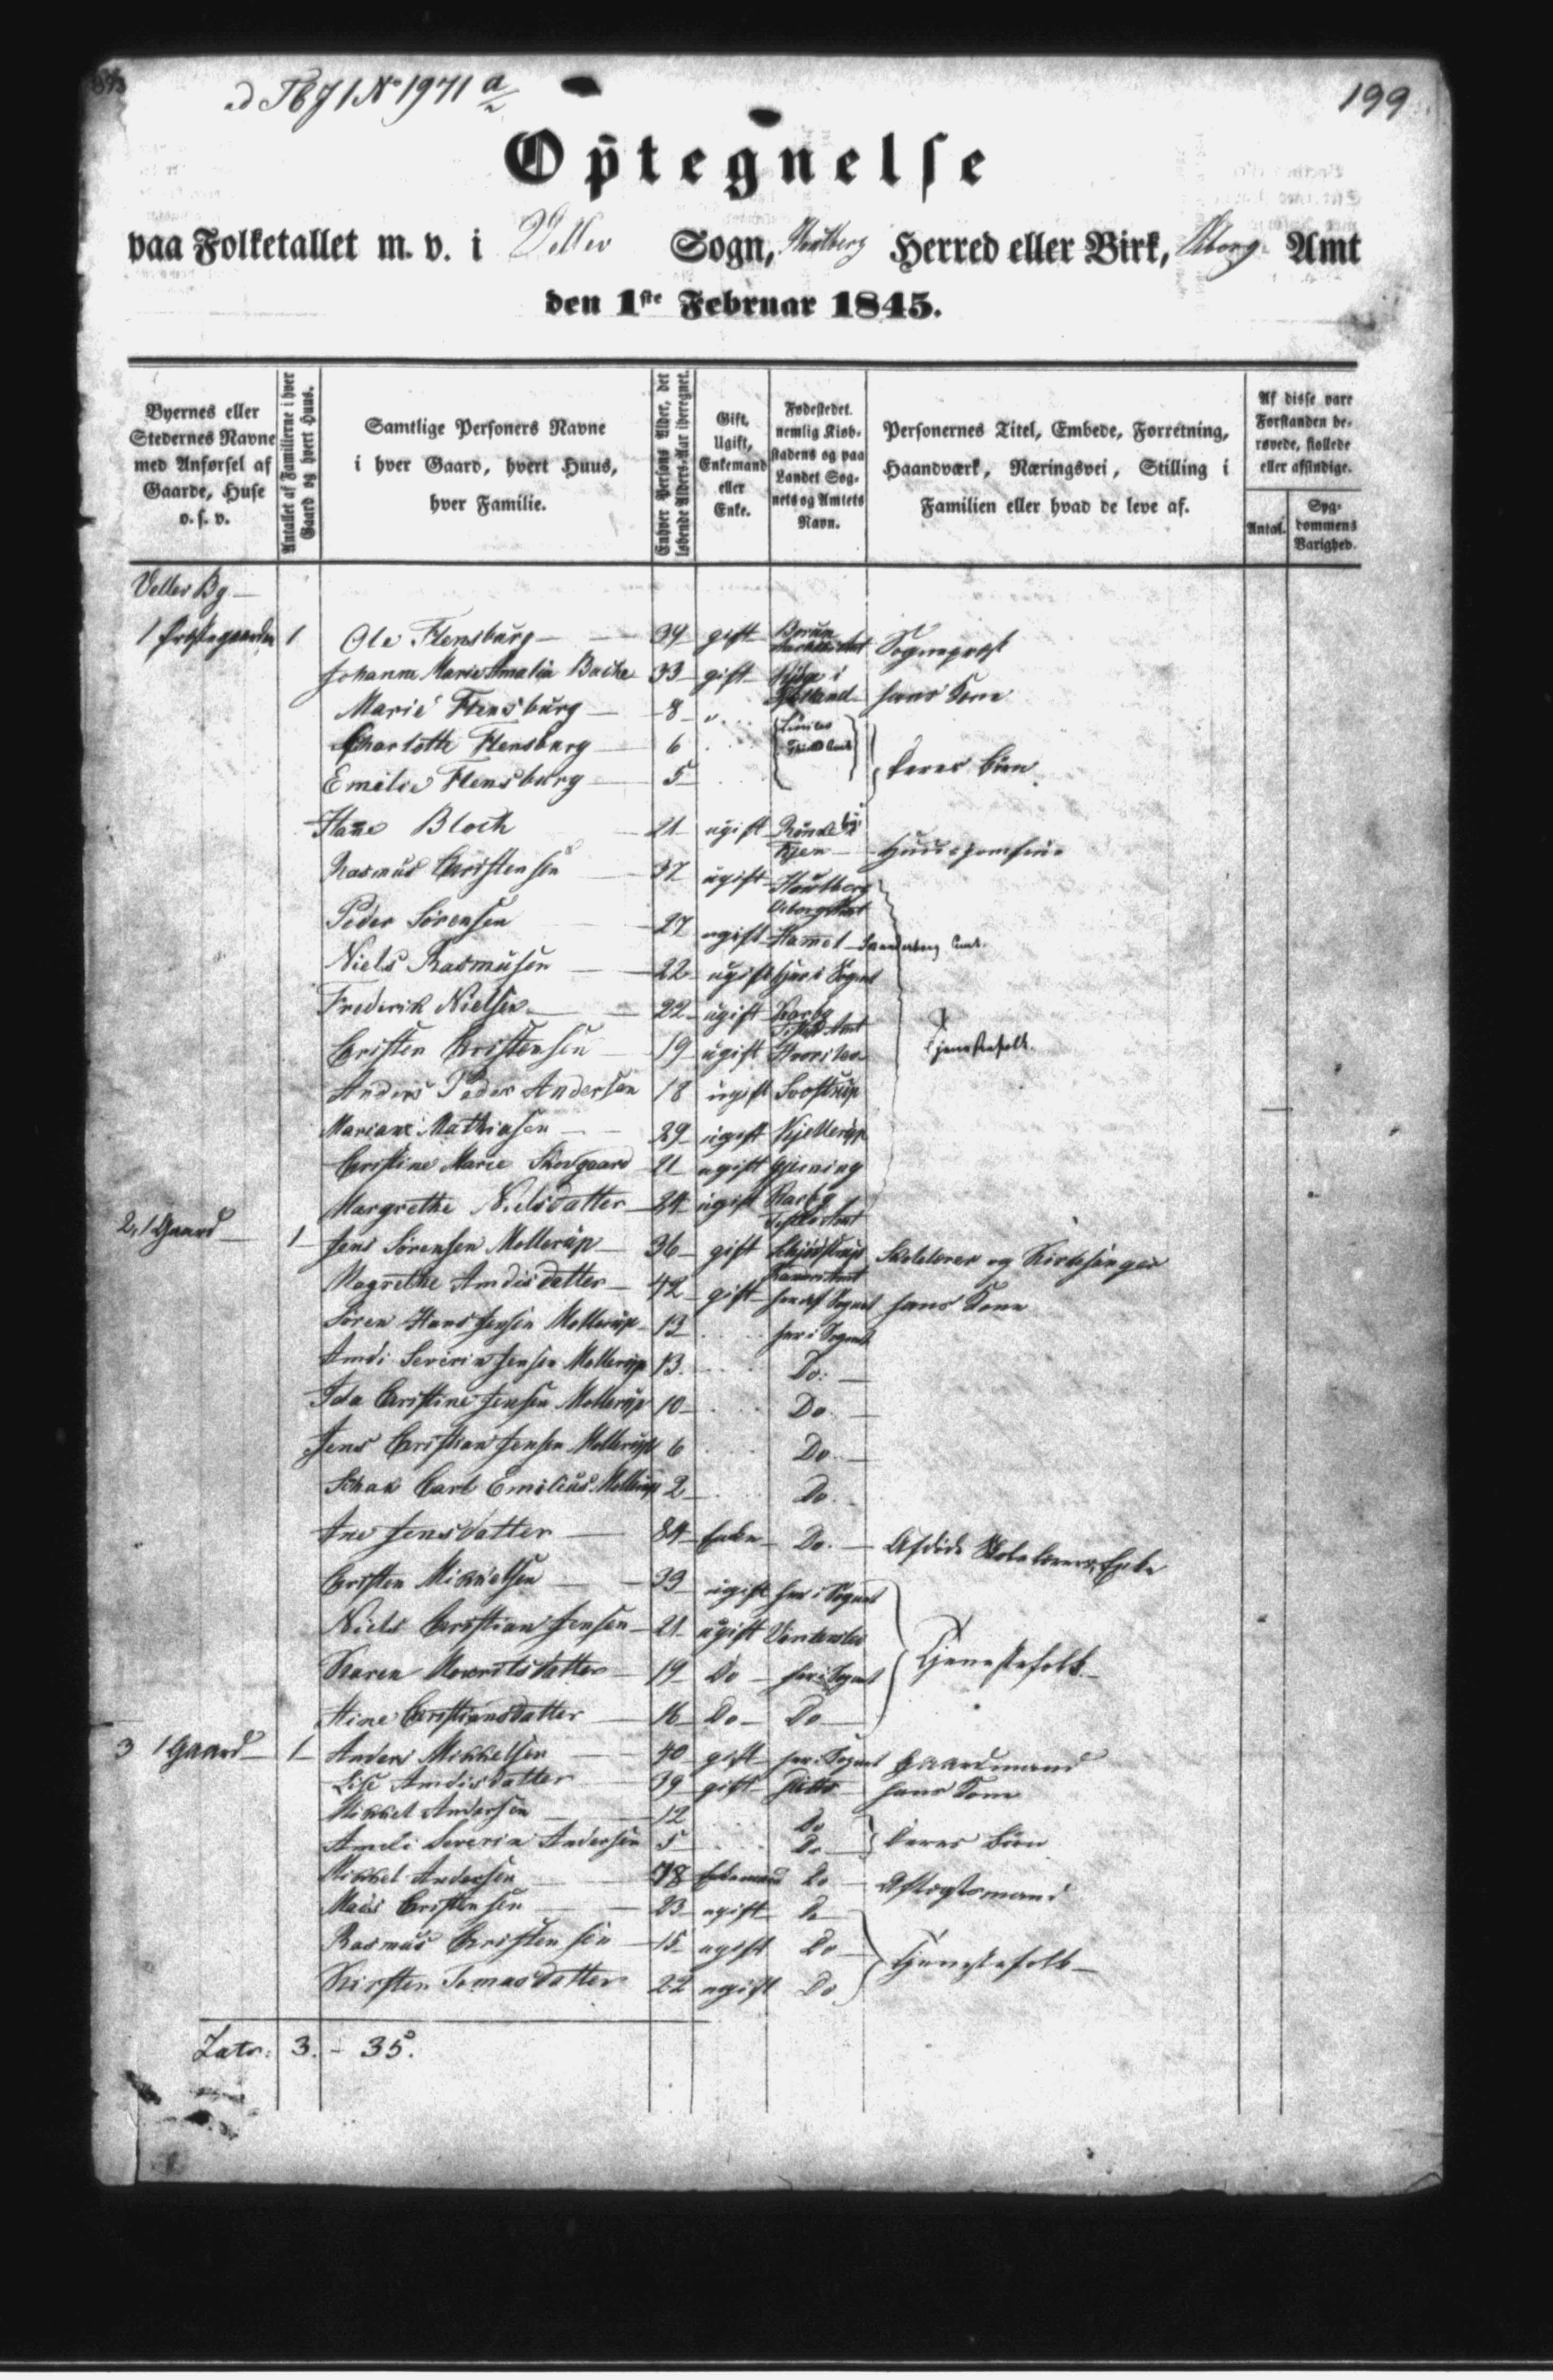 199
Optegnelse
paa Folketallet m. v. i Vellev Sogn, Houlberg Herred eller Birk, Viborg Amt
den 1ste Februar 1845.
Byernes eller Stedernes Navne med Anførsel af Gaarde, Huse o. s. v.
Antallet af Familierne i hver Gaard og hvert Huus.
Samtlige Personers Navne i hver Gaard, hvert Huus, hver Familie.
Enhver Persons Alder, det løbende Alders-Aar iberegnet.
Gift, Ugift, Enkemand eller Enke.
Fødestedet. nemlig Kiøbstadens og paa Landet Sognets og Amtets Navn.
Personernes Titel, Embede, Forretning, Haandværk, Næringsvei, Stilling i Familien eller hvad de leve af.
Af disse vare Forstanden berøvede, fiollede eller afsindige.
Antal.
Sygdommens Varighed.
Vellev By
1 Præstegaarden 1 Ole Flensburg 39 gift Sognepræst
Johanne Marie Amalia Bache 33 gift hans Kone
Marie Flensburg 8
Charlotte Flensburg 6 deres Børn
Emilie Flensburg 5
Hanne Bloch 21 ugift Huusjomfrue
Rasmus Christensen 37 ugift Houlberg Viborg Amt
Peder Sørensen 27 ugift Hammel Skanderborg Amt.
Niels Rasmusen 22 ugift her i Sognet
Frederik Nielsen 22 ugift Karby Tisted Amt
Christen Christensen 19 ugift Tjenestefolk.
Anders Peder Andersen 18 ugift Svostrup
Mariane Mathiasen 29 ugift Kjellerup
Christine Marie Skovgaard 21 ugift Gjerning
Margrethe Nielsdatter 24 ugift Karby Tisted Amt
2, 1 Gaard 1 Jens Sørensen Mollerup 36 gift Randers Amt Skolelærer og Kirkesanger
Magrethe Amdisdatter 42 gift her i Sognet hans Kone
Søren Hans Jensen Mollerup 13 her i Sognet
Amdi Severin Jensen Mollerup 13. Do.
Ida Christine Jensen Mollerup 10 Do.
Jens Christian Jensen Mollerup 6 Do.
Schak Carl Emilius Mollerup 2 Do.
Ane Jensdatter 84 Enke Do. Afdøde Skolelærers Enke
Christen Mikkelsen 39 ugift her i Sognet
Niels Christian Jensen 21 ugift Vinterslev Tjenestefolk.
Karen Mouritsdatter 19 Do her i Sognet
Stine Christiansdatter 16 Do Do
3 1 Gaard 1 Anders Mikkelsen 40 gift her i Sognet Gaardmand
Lise Amdisdatter 39 gift ditto hans Kone
Mikkel Andersen 12 Do
Amdi Severin Andersen 5 Do deres Børn
Mikkel Andersen 78 Enkemand Do Aftægtsmand
Mads Christensen 23 ugift Do
Rasmus Christensen 15 ugift Do Tjenestefolk
Kirsten Tomasdatter 22 ugift Do
Latr. 3. - 35.